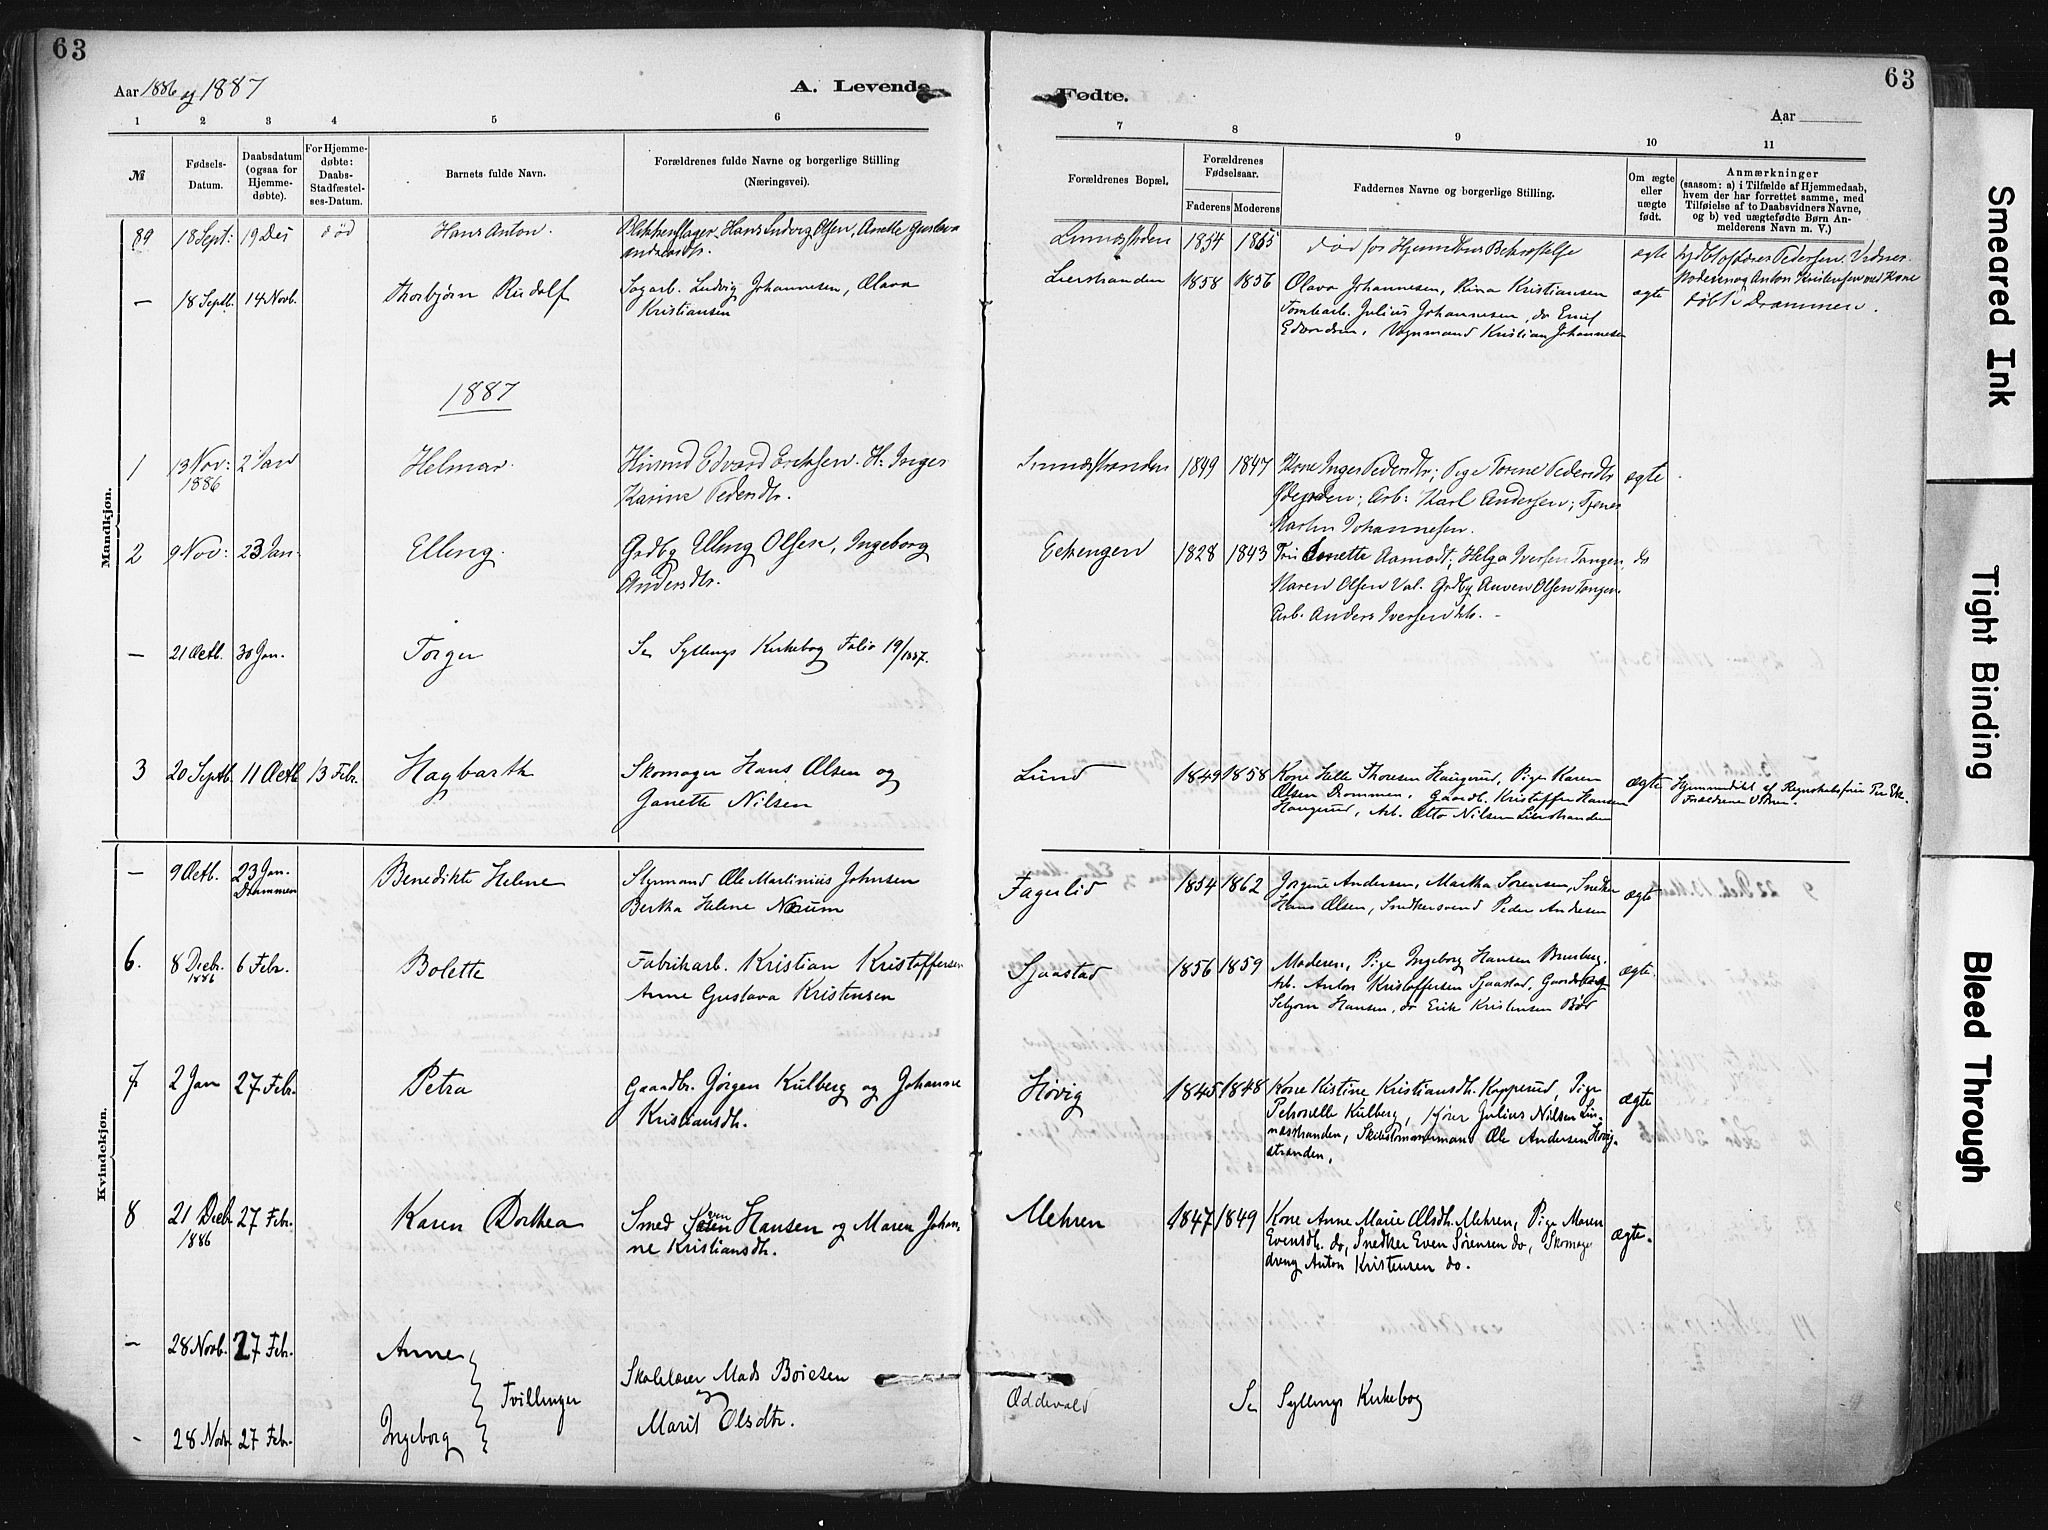 63
Aar 1886 og 1887
A. Levende
1 2 3 4 5 6
№
Fødsels-Datum.
Daabsdatum (ogsaa for Hjemmedøbte).
For Hjemmedøbte: Daabs-Stadfæstelses-Datum.
Barnets fulde Navn.
Forældrenes fulde Navne og borgerlige Stilling
(Næringsvei).
Mandkjøn.
89 18 Sept: 19 Des død Hans Anton. Blikkenslager Hans Ludvig Olsen, Anette Gustava
Andersdtr.
— 18 Septb. 14 Novb. Thorbjørn Rudolf Sagarb. Ludvig Johannesen, Olava
Kristiansen
1887
1 13 Nov: 1886 2 Jan Helmar. Edvard Eriksen. H: Inger
Karine Pedersdtr.
2 9 Nov: 23 Jan. Elling. Grdbg Elling Olsen, Ingeborg
Andersdtr.
— 21 Octb. 30 Jan. Torger Se Syllings Kirkebog Folio 19/1887.
3 20 Septb. 11 Octb 13 Febr. Hagbarth Skomager Hans Olsen og
Janette Nilsen
Kvindekjøn.
— 9 Octb. 23 Jan. Drammen Benedikte Helene Styrmand Ole Martinius Johnsen
Bertha Helene Nærum
6. 8 Decbr. 1886 6 Febr. Bolette Fabrikarb. Kristian Kristoffersen
Anne Gustava Kristensen
7 2 Jan 27 Febr. Petra Gaardbr. Jørgen Kulberg og Johanne
Kristiansdtr.
8 21 Decbr 1886 27 Febr. Karen Dorthea Smed Even Hansen og Maren Johan-
ne Kristiansdtr.
— 28 Novb. 27 Febr. Anne
Tvillinger
Skolelærer Mads Boiesen
og
Marit Olsdtr.
- 28 Novbr 27 Febr. Ingeborg
63
Fødte.
Aar
7 8 9 10 11
Forældrenes Bopæl.
Forældrenes Fødselsaar.
Faderens Moderens
Faddernes Navne og borgerlige Stilling.
Om ægte eller uægte født.
Anmærkninger
(saasom: a) i Tilfælde af Hjemmedaab,
hvem der har forrettet samme, med
Tilføielse af to Daabsvidners Navne,
og b) ved uægtefødte Børn An-
melderens Navn m. V.)
1854 1865 død før Hjemmedaabens Bekræftelse ægte
Lierstranden 1858 1856 Olava Johannesen, Rina Kristiansen ægte
Tomtearb. Julius Johannesen, do Emil
Edvardsen, Vognmand Kristian Johannesen
døbt i Drammen.
Linnesstranden 1849 1847 Kone Inger Pedersdtr; Pige Torine Pedersdtr ægte
Arb: Karl Andersen; Tjener
Martin Johannesen.
Eekengen 1828 1843 Anette Aamodt; Helga Iversen Tangen, do
Maren Olsen Val. Grdbg Olsen Tangen.
Arb. Anders Iversen
Lund 1849 1858 Kone Helle Thoresen Haugerud, Pige Karen ægte
Olsen Drammen, Gaardbr. Kristoffer Hansen
Haugerud, Arb. Otto Nilsen Lierstranden
Hjemmedøbt af
Fagerlid 1854 1862 Jørgine Andersen, Martha Sørensen, Snedker ægte
Hans Olsen, Snedkersvend Peder Andresen
Sjaastad 1856 1859 Moderen, Pige Ingeborg Hansen ægte.
Arb. Anton Kristoffersen Sjaastad,
Hansen, do Erik Kristensen
Høvig 1845 1848 Kone Kistine Kristiansdtr. Kopperud, Pige ægte
Petronelle Kulberg, Julius Nilsen Lin-
nesstranden, Skibstømmermand Ole Andersen Høvig-
stranden.
Mehren 1847 1849 Kone Anne Marie Olsdtr. Mehren, Pige Maren ægte.
Evensdtr. do, Snedker Even Sørensen do, Skomager
dreng Anton Kristensen do.
Oddevald Se Syllings Kirkebog
Smeared Ink
Tight Binding
Bleed Through